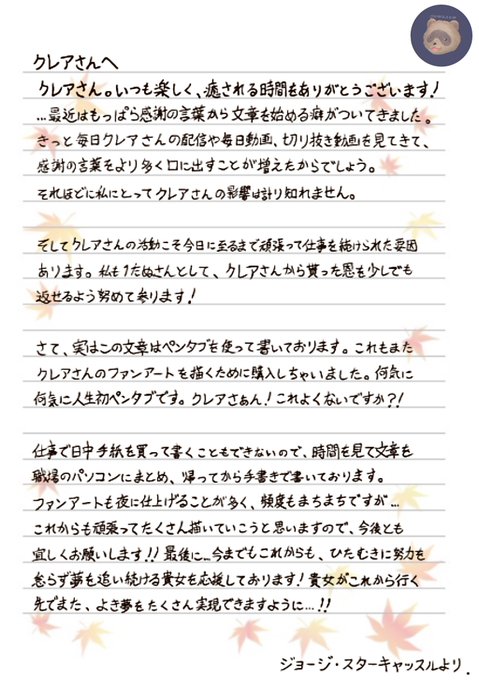 クレアさんへ
クレアさん。いつも楽しく、癒される時間をありがとうございます!
…最近はもっぱら感謝の言葉から文章を始める癖がついてきました。
きっと毎日クレアさんの配信や毎日動画、切り抜き動画を見てきて、
感謝の言葉をより多く口に出すことが増えたからでしょう。
それほどに私にとってクレアさんの影響は計り知れません。
そしてクレアさんの活動こそ今日に至るまで頑張って仕事を続けられた要因
あります。私も1たぬさんとして、クレアさんから貰った恩を少しでも
返せるよう努めて参ります!
さて、実はこの文章はペンタブを使って書いております。これもまた
クレアさんのファンアートを描くために購入しちゃいました。何気に
何気に人生初ペンタブです。クレアさぁん!これよくないですか?!
仕事で日中手紙を買って書くこともできないので、時間を見て文章を
職場のパソコンにまとめ、帰ってから手書きで書いております。
ファンアートも夜に仕上げることが多く、頻度もまちまちですが…
これからも頑張ってたくさん描いていこうと思いますので、今後とも
宜しくお願いします!!最後に…今までもこれからも、ひたむきに努力も
怠らず夢を追い続ける貴女を応援しております!貴女がこれから行く
先でまた、よき夢をたくさん実現できますように…!!
ジョージ・スターキャッスルより.